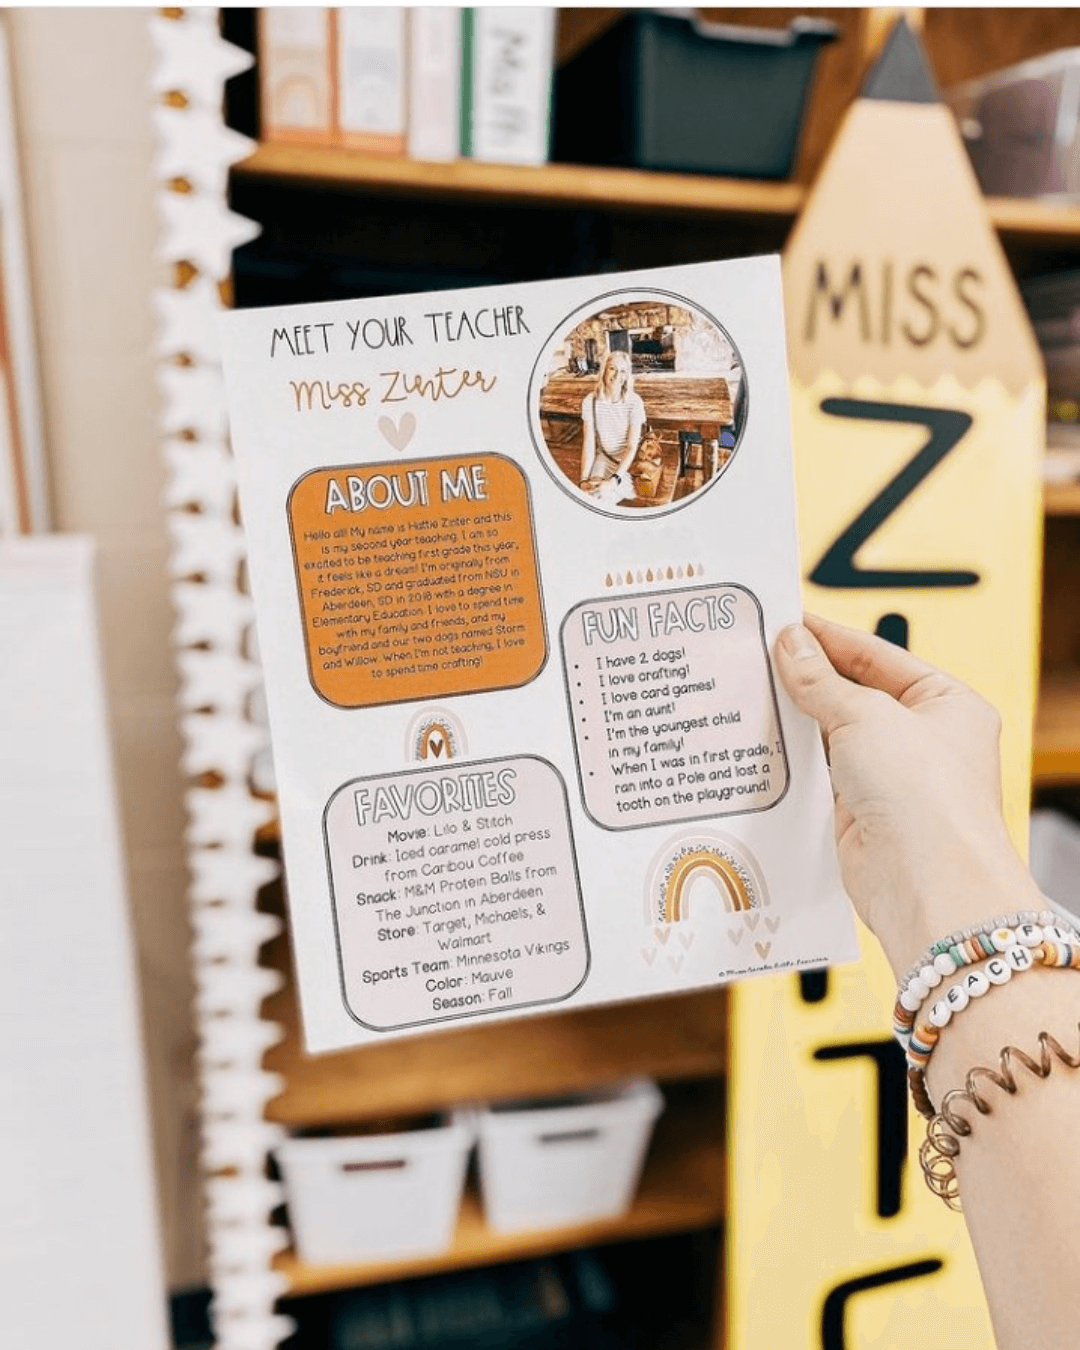 Math
MISS
Z
T
MEET YOUR TEACHER
Miss Zinter
ABOUT ME
Hello all! My name is Hattie Zinter and this
is my second year teaching. I am so
excited to be teaching first grade this year,
it feels like a dream! I'm originally from
Frederick, SD and graduated from NSU in
Aberdeen, SD in 2018 with a degree in
Elementary Education. I love to spend time
with my family and friends, and my
boyfriend and our two dogs named Storm
and Willow. When I'm not teaching, I love
to spend time crafting!
FUN FACTS
• I have 2 dogs!
• I love crafting!
• I love card games!
• I'm an aunt!
• I'm the youngest child
in my family!
• When I was in first grade, I
ran into a Pole and lost a
tooth on the playground!
FAVORITES
Movie: Lilo & Stitch
Drink: Iced caramel cold press
from Caribou Coffee
Snack: M&M Protein Balls from
The Junction in Aberdeen
Store: Target, Michaels, &
Walmart
Sports Team: Minnesota Vikings
Color: Mauve
Season: Fall
FI
TEACH